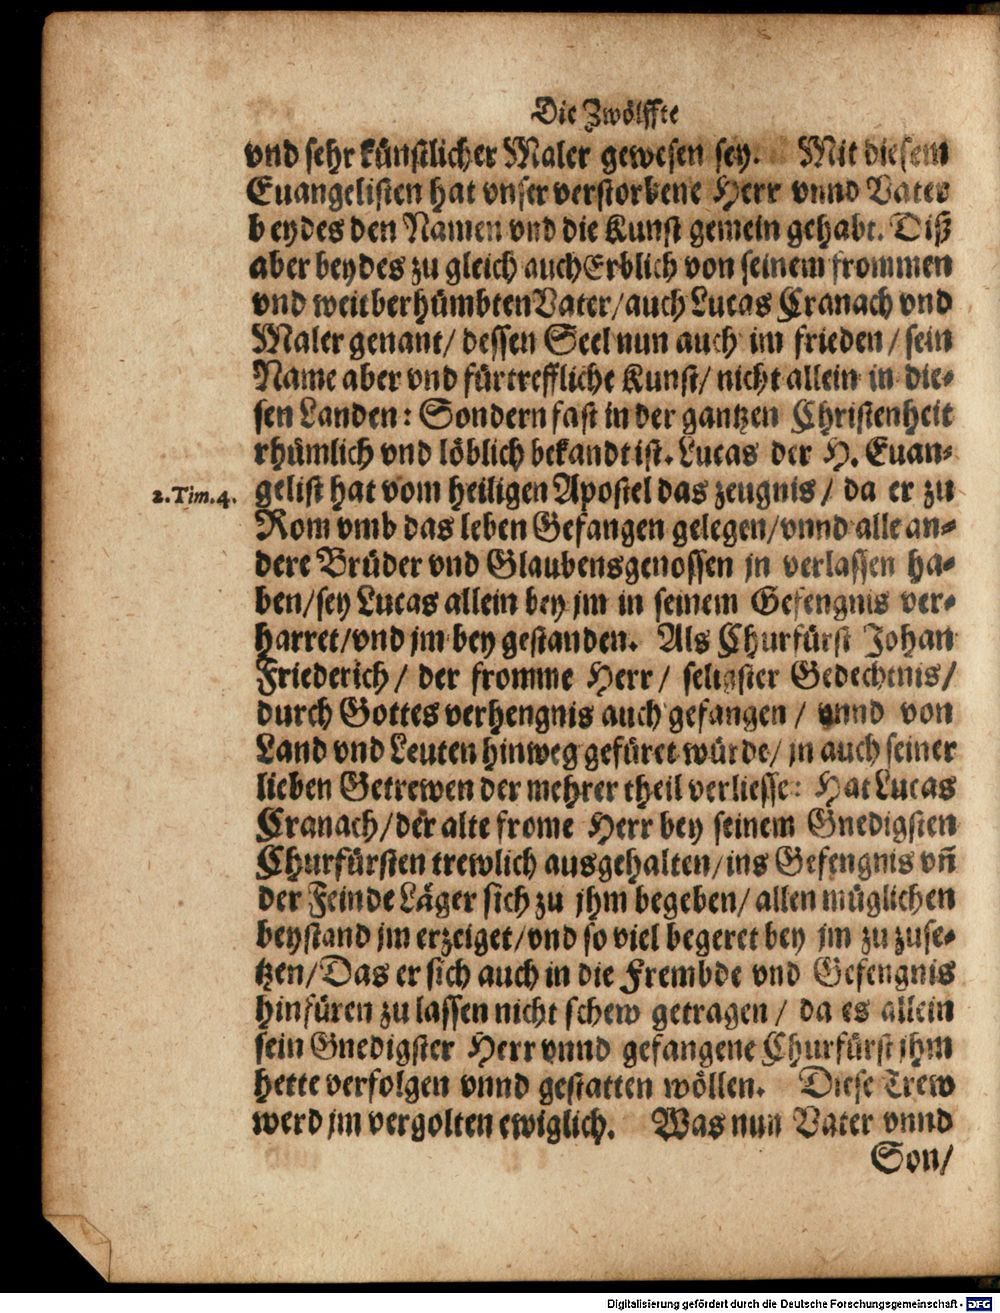 Die Zwölffte
vnd sehr künstlicher Maler gewesen sey. Mit diesem
Euangelisten hat vnser verstorbene Herr vnnd Vater
beydes den Namen vnd die Kunst gemein gehabt. Diß
aber beydes zu gleich auch Erblich von seinem frommen
vnd weitberhümbten Vater/auch Lucas Cranach vnd
Maler genant/ dessen Seel nun auch im frieden/ sein
Name aber vnd fürtreffliche Kunst/ nicht allein in die-
sen Landen: Sondern fast in der gantzen Christenheit
rhümlich vnd löblich bekandt ist. Lucas der H. Euan-
2. Tim. 4. gelist hat vom heiligen Apostel das zeugnis/ da er zu
Rom vmb das leben Gefangen gelegen/vnnd alle an-
dere Brüder vnd Glaubensgenossen jn verlassen ha-
ben/sey Lucas allein bey jm in seinem Gefengnis ver-
harret/vnd jm bey gestanden. Als Churfürst Johan
Friederich/ der fromme Herr/ seligster Gedechtnis/
durch Gottes verhengnis auch gefangen/ vnnd von
Land vnd Leuten hinweg gefüret würde/ jn auch seiner
lieben Getrewen der mehrer theil verliesse: Hat Lucas
Cranach/der alte frome Herr bey seinem Gnedigsten
Churfürsten trewlich ausgehalten/ins Gefengnis vñ
der Feinde Läger sich zu jhm begeben/ allen müglichen
beystand jm erzeiget/vnd so viel begeret bey jm zu zuse-
tzen/Das er sich auch in die Frembde vnd Gefengnis
hinfüren zu lassen nicht schew getragen/ da es allein
sein Gnedigster Herr vnnd gefangene Churfürst jhm
hette verfolgen vnnd gestatten wöllen. Diese Trew
werd jm vergolten ewiglich. Was nun Vater vnnd
Son/
Digitalisierung gefördert durch die Deutsche Forschungsgemeinschaft - DFG